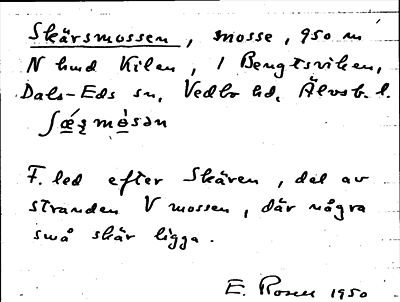 Skärsmossen, mosse, 950 m
N hmd Kilen, i Bengtsviken,
Dals-Eds sn, Vedbo hd, Älvsb. l.
ʃæ̀ʂmɵ̀sən
F. led efter Skären, del av
stranden V mossen, där några
små skär ligga.
E. Rosen 1950